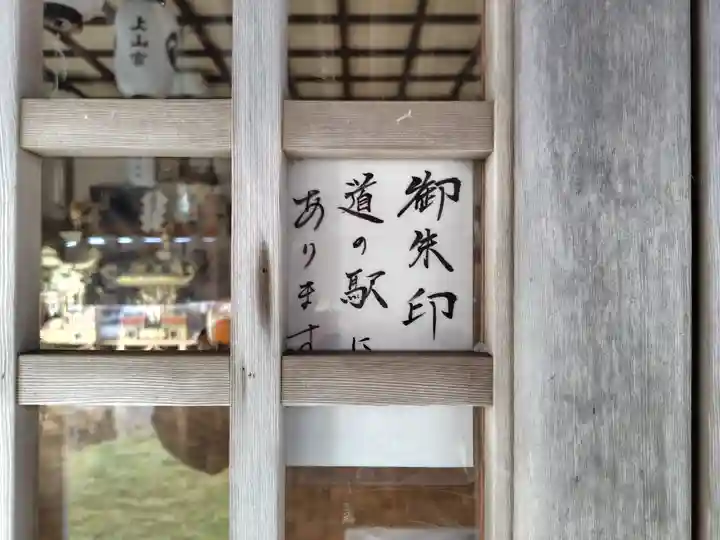 御朱印
道の駅に
あります
上山宮